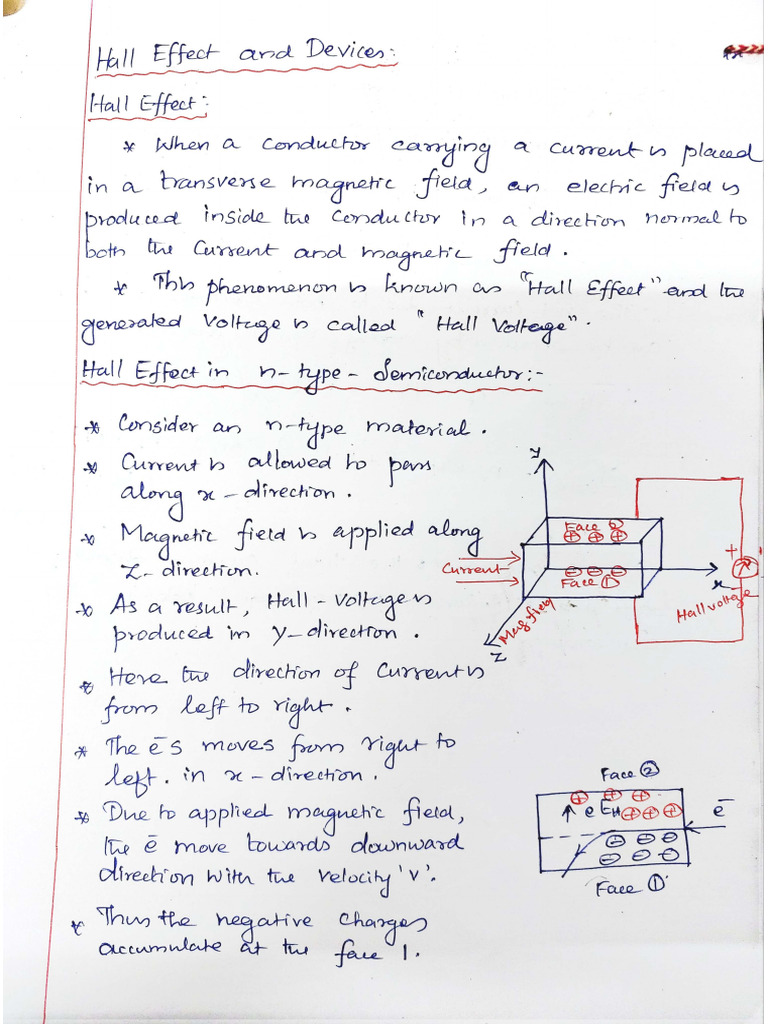 Hall Effect and Devices:
Hall Effect:
* When a conductor carrying a current is placed
in a transverse magnetic field, an electric field is
produced inside the conductor in a direction normal to
both the current and magnetic field.
* This phenomenon is known as "Hall Effect" and the
generated voltage is called "Hall Voltage".
Hall Effect in n-type-Semiconductor:-
* Consider an n-type material.
* Current is allowed to pass
along x-direction.
* Magnetic field is applied along
Z-direction.
* As a result, Hall-Voltage is
produced in y-direction.
* Here the direction of current is
from left to right.
* The ēs moves from right to
left. in x-direction.
* Due to applied magnetic field,
the ē move towards downward
direction with the velocity 'v'.
* Thus the negative charges
accumulate at the face 1.
y
Face ②
⊕ ⊕ ⊕
Current
⊖ ⊖ ⊖
Face ①
x
+
-
Hall voltage
Mag field
Z
Face ②
⊕ ⊕ ⊕
e EH ⊕⊕⊕
ē
⊖ ⊖ ⊖
⊖ ⊖ ⊖
Face ①